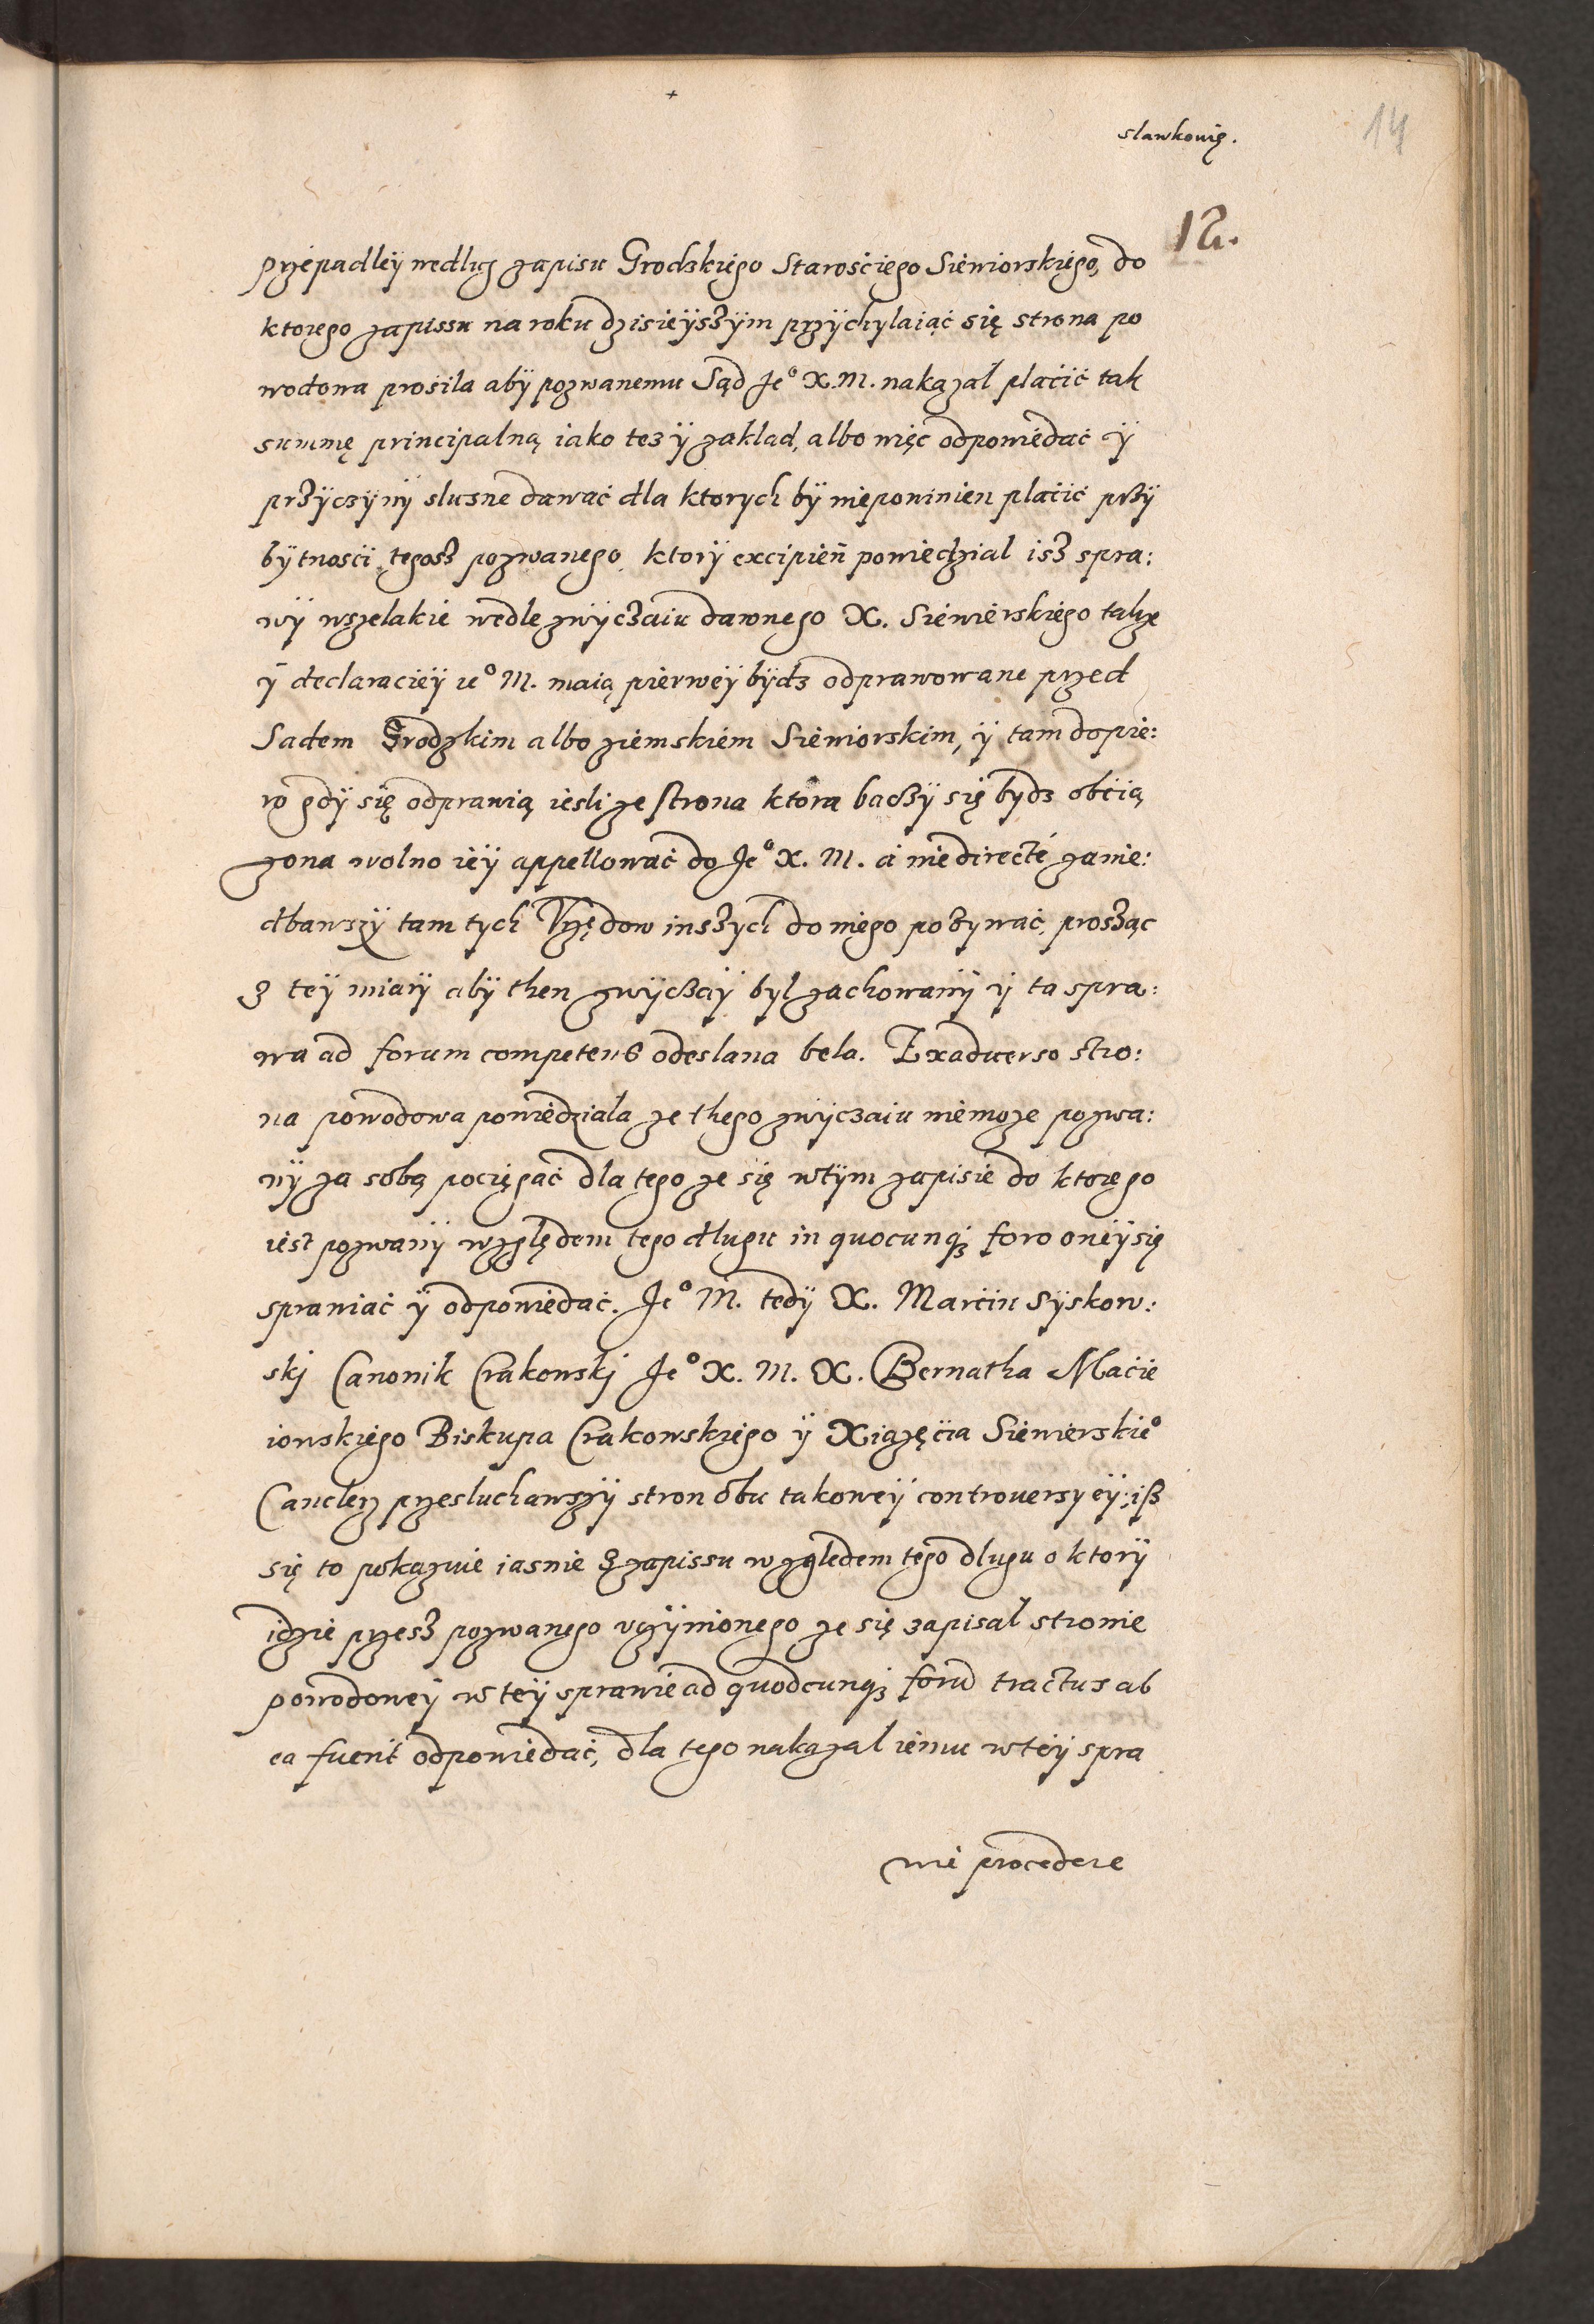 slawkowię.
14
12.
przepadleÿ wedlug zapisu Grodskiego Starościego Siewiorskiego, do
ktorego zapissu na roku dzisieÿszÿm przÿchylaiąć się strona po
wodowa prosila abÿ pozwanemu Sąd Je° X. M. nakazal placić tak
summę principalną iako tez ÿ zaklad, albo więc odpowiedać ÿ
przÿczÿnÿ slusne dawać dla ktorych bÿ niepowinien placić przÿ
bÿtnosci tegosz pozwanego. ktorÿ excipień powiedzial isz spra:
wÿ wszelakie wedle zwÿczaiu dawnego X. Siewierskiego takze
ÿ declaracieÿ ie° M. maią pierweÿ bÿdz odprawowane przed
Sadem Grodzkim albo ziemskiem Siewiorskim, ÿ tam dopie:
ro gdÿ się odprawią iesli ze strona ktora baczÿ się bydz obcią
zona wolno ieÿ appellować do Je° X. M. a nie directé zanie:
dbawszÿ tam tych Vrzędow inszych do niego pozywać, prosząc
z teÿ miarÿ abÿ then zwÿczaÿ byl zachowanÿ ÿ ta spra:
wa ad forum competens odeslana bela. Exaduerso stro:
na powodowa powiedziala ze thego zwÿczaiu niemoze pozwa:
nÿ za sobą pocięgać dla tego ze się wtÿm zapisie do ktorego
iest pozwanÿ względem tego dlugu in quocunq3 foro oneÿ się
sprawiać ÿ odpowiedać. Je° M. tedÿ X. Marcin Sÿskow:
skj Canonik Crakowskj Je° X. M. X. Bernatha Macie
iowskiego Biskupa Crakowskiego ÿ Xiązęcia Siewierskie°
Canclerz przesluchawszÿ stron obu takoweÿ controuersy eÿ: iß
się to pokazuie iasnie z zapissu względem tego dlugu o ktorÿ
idzie przesz pozwanego vczÿnionego ze się zapisal stronie
powodoweÿ w teÿ sprawie ad quodcunq3 forū tractus ab
ea fuerit odpowiedać, dla tego nakazal iemu wteÿ spra
wie procedere